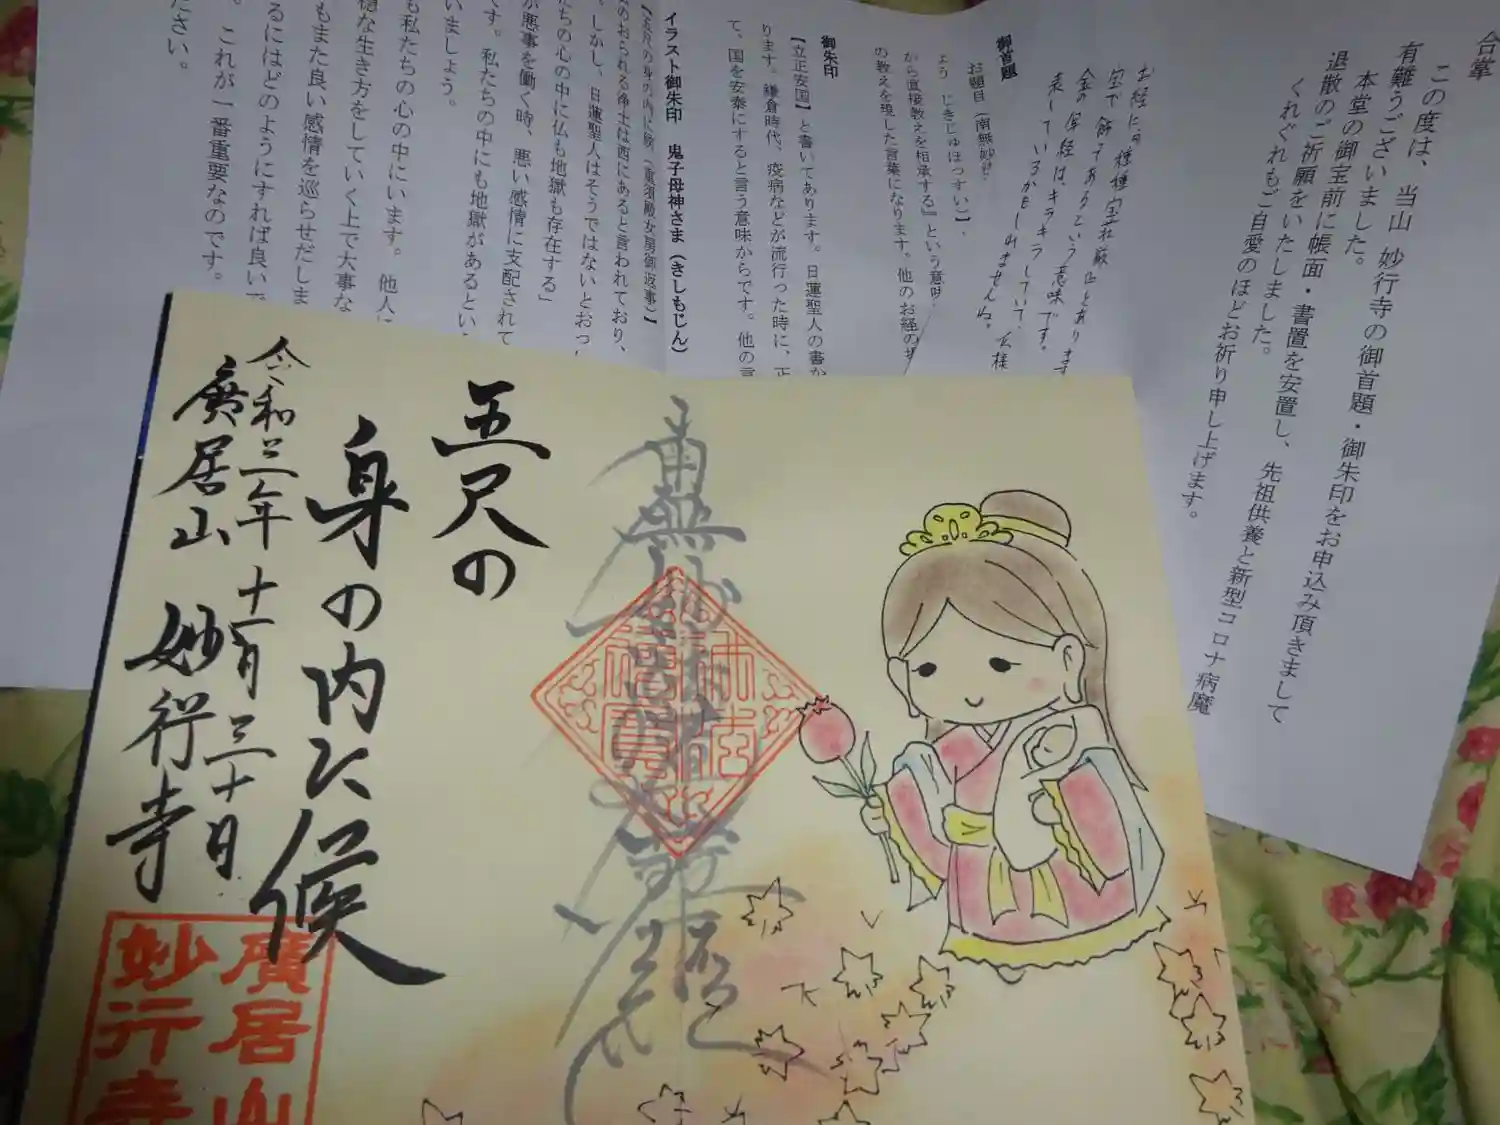 合掌
この度は、当山 妙行寺の御首題・御朱印をお申込み頂きまして
有難うございました。
本堂の御宝前に帳面・書置を安置し、先祖供養と新型コロナ病魔
退散のご祈願をいたしました。
くれぐれもご自愛のほどお祈り申し上げます。
お経に
金の
表しているかもしれませんね。
御首題
お題目（南無妙法
よう じきじゅほっすい】、
から直接教えを相承する』という意味
の教えを現した言葉になります。他のお経の
御朱印
【立正安国】と書いてあります。日蓮聖人の書か
ります。鎌倉時代、疫病などが流行った時に、正
て、国を安泰にすると言う意味からです。他の言
イラスト御朱印 鬼子母神さま（きしもじん）
【五尺の身の内に候（重須殿女房御返事）】
のおられる浄土は西にあると言われており、
。しかし、日蓮聖人はそうではないとおっし
たちの心の中に仏も地獄も存在する」
が悪事を働く時、悪い感情に支配されて
です。私たちの中にも地獄があるとい
いましょう。
も私たちの心の中にいます。他人に
穏な生き方をしていく上で大事な
もまた良い感情を巡らせだしま
るにはどのようにすれば良いで
。これが一番重要なのです。
ださい。
五尺の
身の内に候
令和三年十一月三十日
廣居山 妙行寺
廣居山
妙行寺